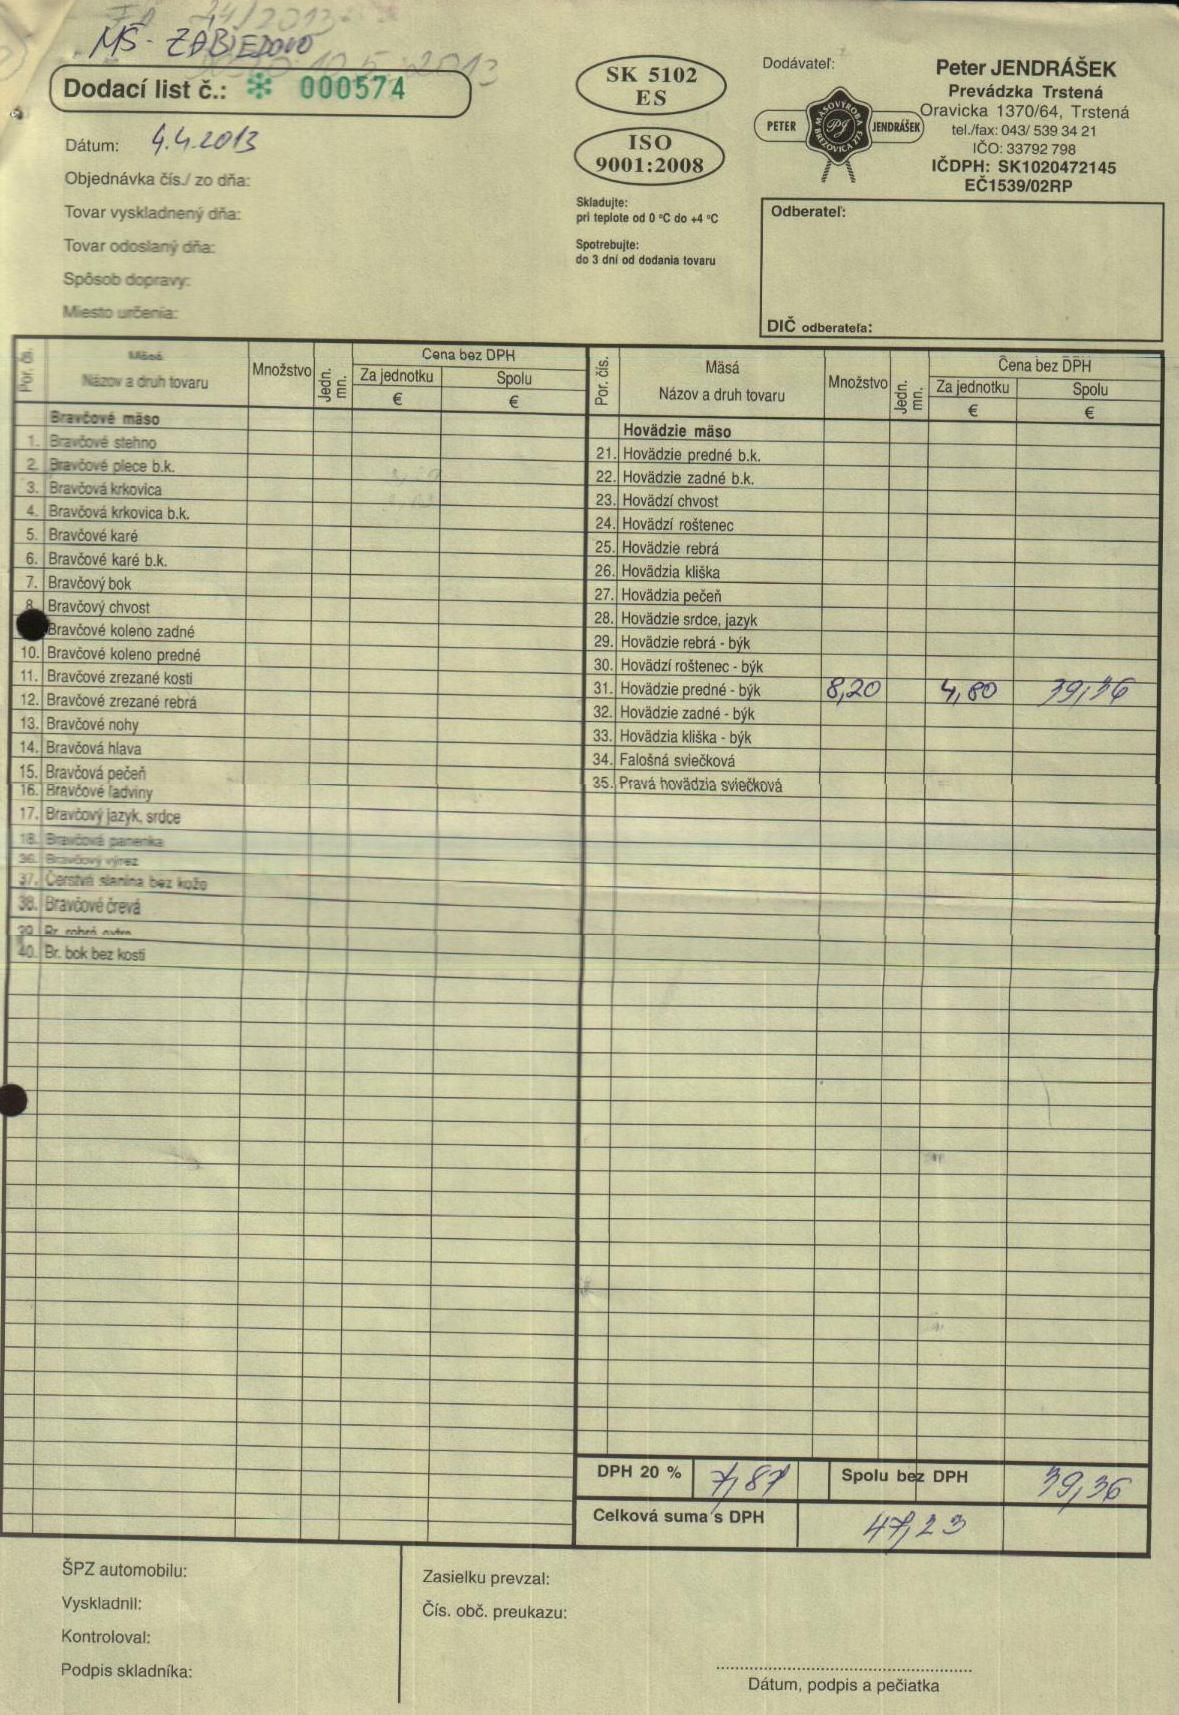 MŠ - ZÁBIEDOVO
Dodací list č.: 000574
Dátum: 4.4.2013
Objednávka čís./ zo dňa:
Tovar vyskladnený dňa:
Tovar odoslaný dňa:
Spôsob dopravy:
Miesto určenia:
SK 5102
ES
ISO
9001:2008
Skladujte:
pri teplote od 0 °C do +4 °C
Spotrebujte:
do 3 dní od dodania tovaru
Dodávateľ:
PETER JENDRÁŠEK
MÄSOVÝROBA
PJ
BREZOVICA 273
Peter JENDRÁŠEK
Prevádzka Trstená
Oravicka 1370/64, Trstená
tel./fax: 043/ 539 34 21
IČO: 33792 798
IČDPH: SK1020472145
EČ1539/02RP
Odberateľ:
DIČ odberateľa:
Por. čís. Mäsá Názov a druh tovaru Množstvo Jedn. mn. Cena bez DPH Za jednotku € Spolu €
Bravčové mäso
1. Bravčové stehno
2. Bravčové plece b.k.
3. Bravčová krkovica
4. Bravčová krkovica b.k.
5. Bravčové karé
6. Bravčové karé b.k.
7. Bravčový bok
8. Bravčový chvost
Bravčové koleno zadné
10. Bravčové koleno predné
11. Bravčové zrezané kosti
12. Bravčové zrezané rebrá
13. Bravčové nohy
14. Bravčová hlava
15. Bravčová pečeň
16. Bravčové ľadviny
17. Bravčový jazyk, srdce
18. Bravčová panenka
36. Bravčový výrez
37. Čerstvá slanina bez kože
38. Bravčové črevá
39. Br. rebrá extra
40. Br. bok bez kosti
Por. čís. Mäsá Názov a druh tovaru Množstvo Jedn. mn. Cena bez DPH Za jednotku € Spolu €
Hovädzie mäso
21. Hovädzie predné b.k.
22. Hovädzie zadné b.k.
23. Hovädzí chvost
24. Hovädzí roštenec
25. Hovädzie rebrá
26. Hovädzia kliška
27. Hovädzia pečeň
28. Hovädzie srdce, jazyk
29. Hovädzie rebrá - býk
30. Hovädzí roštenec - býk
31. Hovädzie predné - býk 8,20 4,80 39,36
32. Hovädzie zadné - býk
33. Hovädzia kliška - býk
34. Falošná sviečková
35. Pravá hovädzia sviečková
DPH 20 % 7,87 Spolu bez DPH 39,36
Celková suma s DPH 47,23
ŠPZ automobilu:
Vyskladnil:
Kontroloval:
Podpis skladníka:
Zasielku prevzal:
Čís. obč. preukazu:
Dátum, podpis a pečiatka